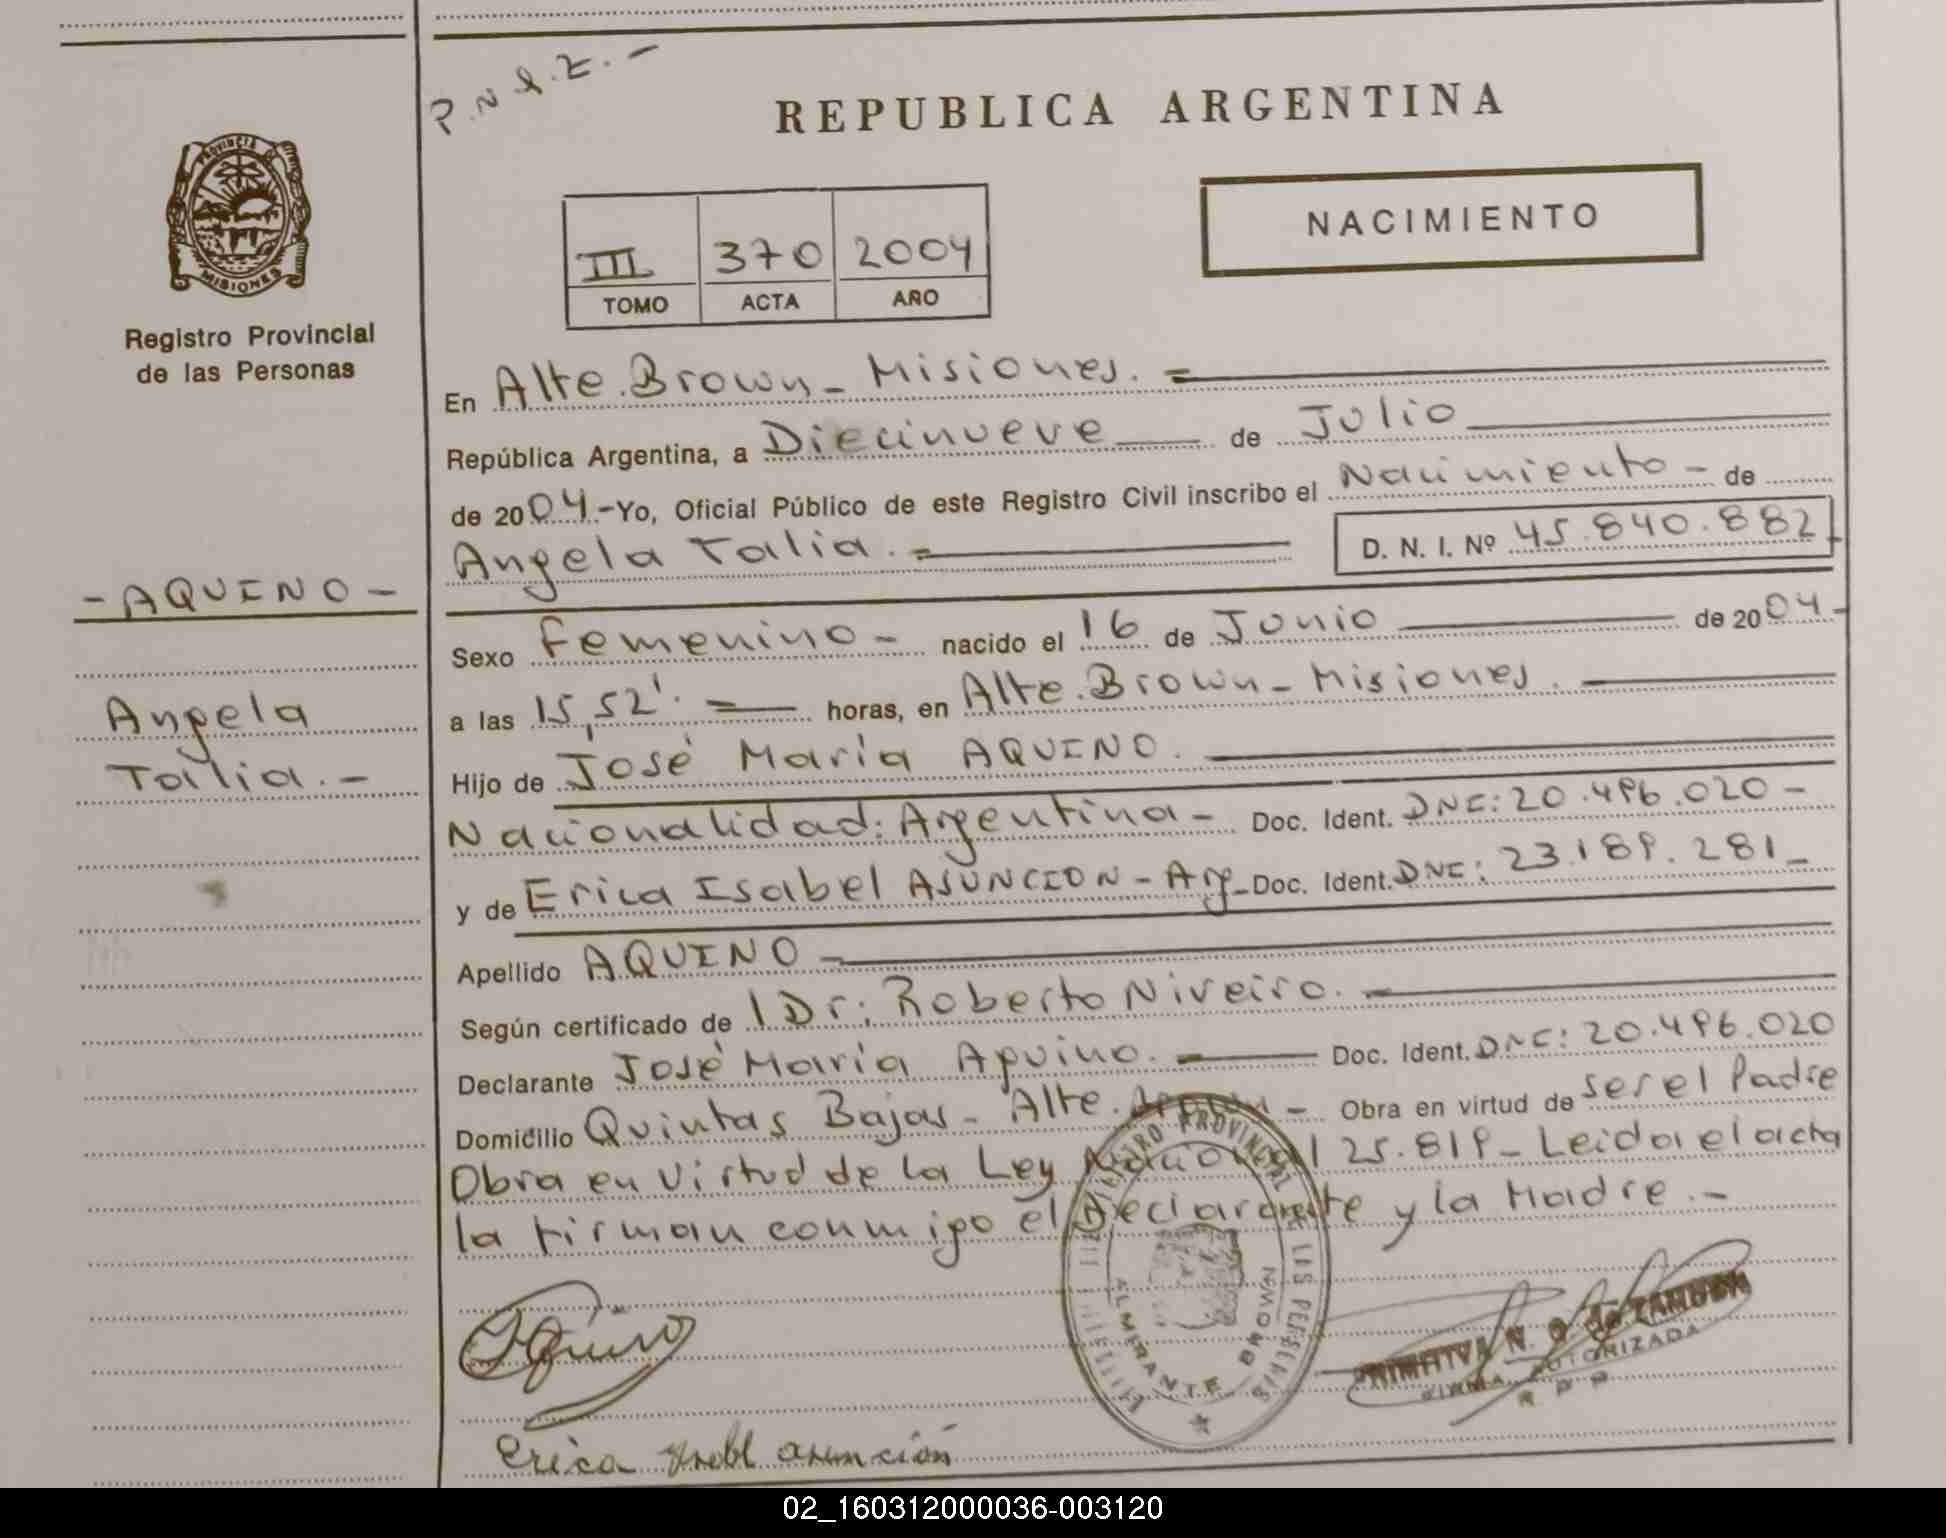 P.N.&.E.-
REPUBLICA ARGENTINA
PROVINCIA DE MISIONES
NACIMIENTO
III 370 2004
TOMO ACTA AÑO
Registro Provincial
de las Personas
En Alte. Brown - Misiones. =
República Argentina, a Diecinueve de Julio
de 2004.- Yo, Oficial Público de este Registro Civil inscribo el Nacimiento - de
Angela Talia. = D. N. I. Nº 45.840.882
- AQUINO -
Angela
Talia. -
Sexo Femenino - nacido el 16 de Junio de 2004 -
a las 15,52'. = horas, en Alte. Brown - Misiones.
Hijo de José María AQUINO.
Nacionalidad: Argentina - Doc. Ident. DNI: 20.496.020 -
y de Erica Isabel ASUNCION - Arg - Doc. Ident. DNI: 23.189.281 -
Apellido AQUINO
Según certificado de l Dr: Roberto Niveiro.
Declarante José María Aquino. Doc. Ident. DNI: 20.496.020
Domicilio Quintas Bajas - Alte. Brown - Obra en virtud de ser el Padre
Obra en virtud de la Ley Nacional 25.819 - Leida el acta
la firman conmigo el Declarante y la Madre. -
REGISTRO PROVINCIAL DE LAS PERSONAS
MISIONES
ALMIRANTE BROWN
N. G. de
FIRMA AUTORIZADA
R P P
Erica Isabel asunción
02_160312000036-003120